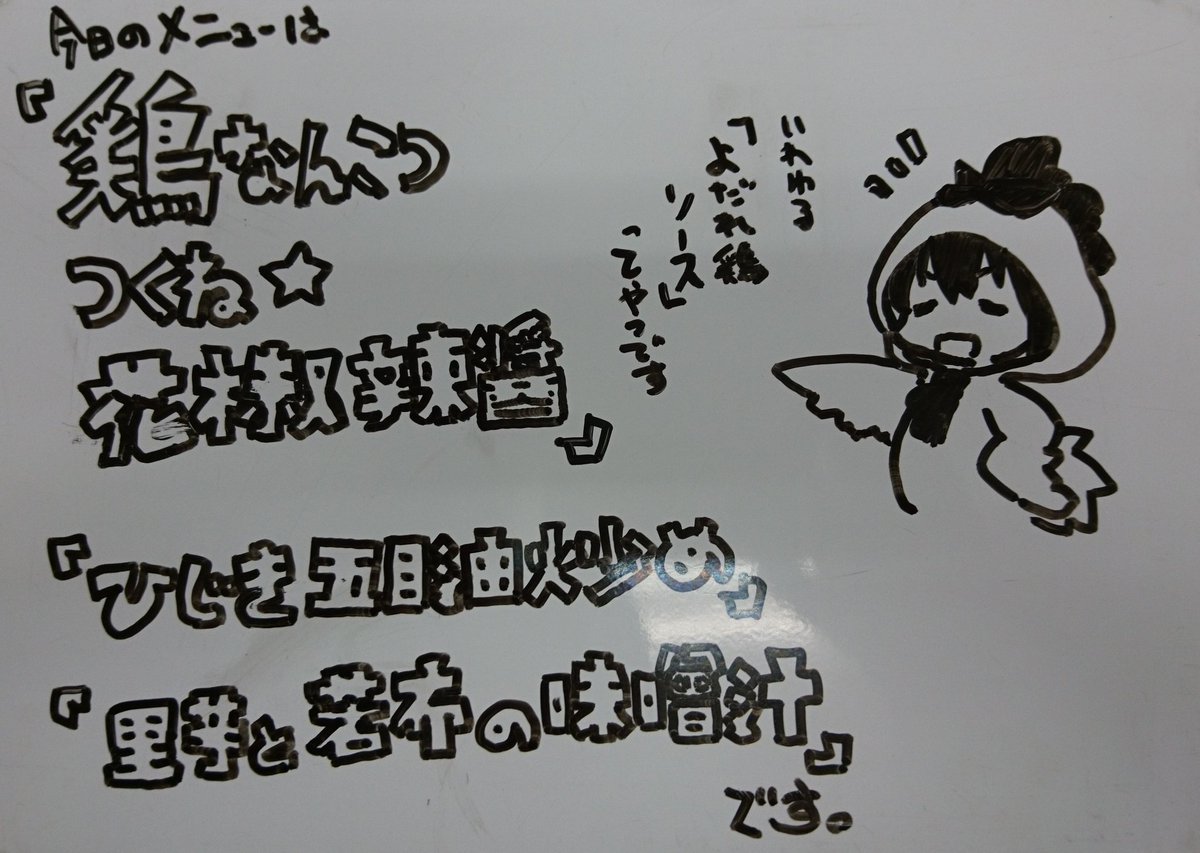 今日のメニューは
『鶏なんこつ
つくね☆
花椒辣醤』
いわゆる
「よだれ鶏
ソース」
ってやつです
『ひじき五目油炒め』
『里芋と若布の味噌汁』
です。